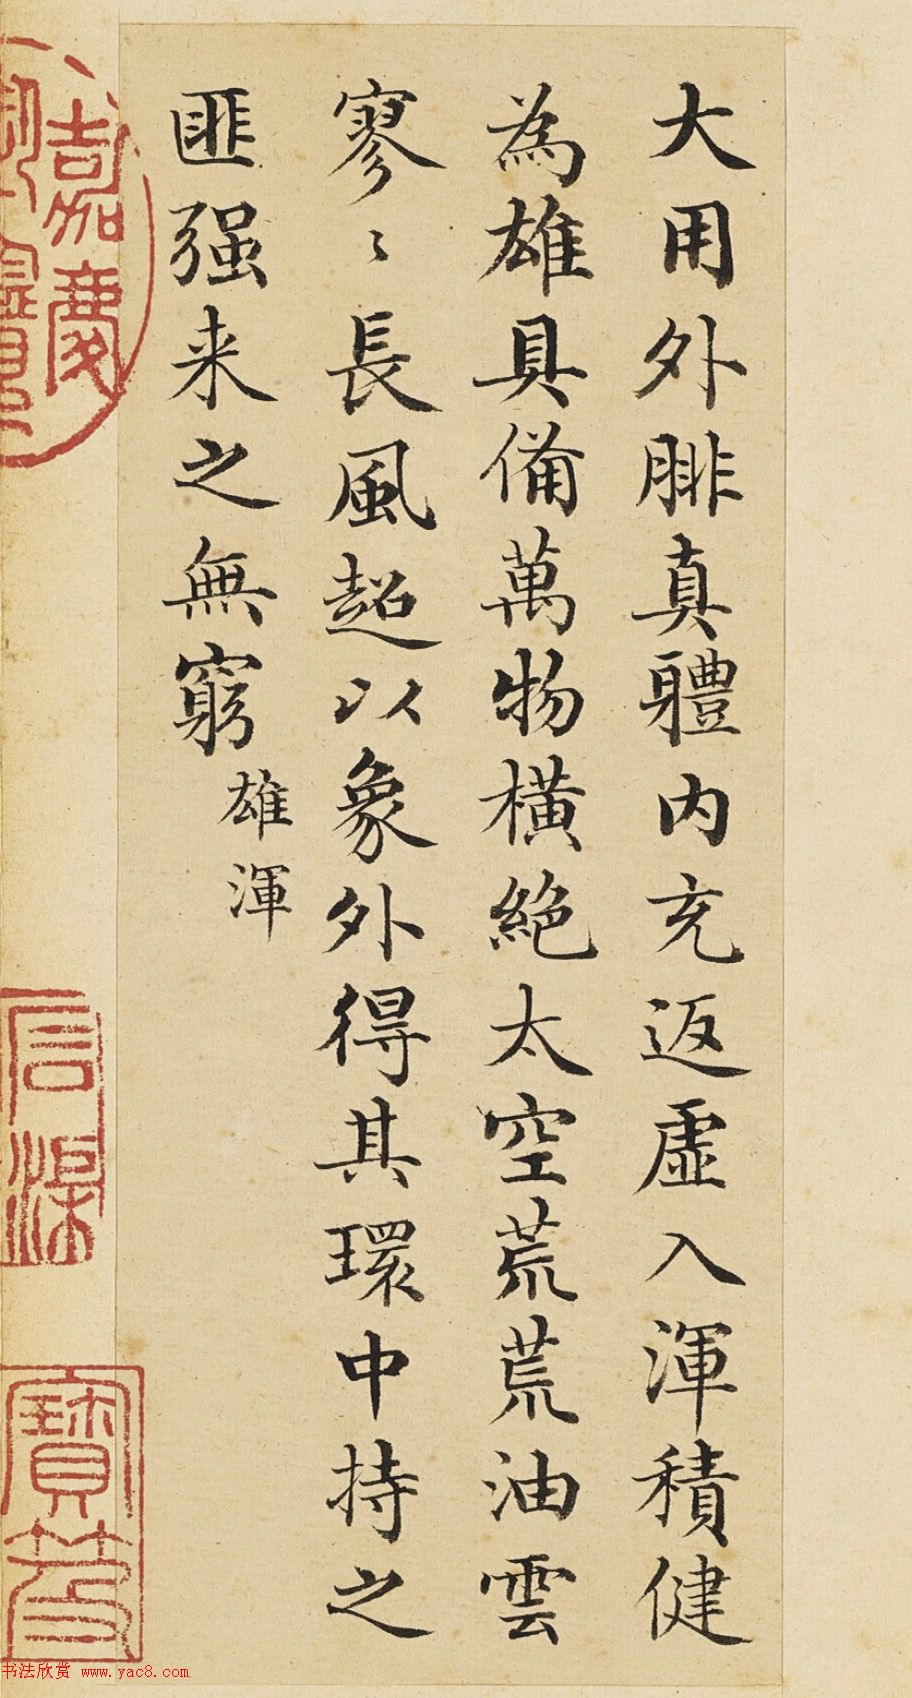 大用外腓真體内充返虛入渾積健
為雄具備萬物橫絶太空荒荒油雲
寥〻長風超以象外得其環中持之
匪强来之無窮
雄渾
嘉慶
寶
书法欣赏 www.yac8.com